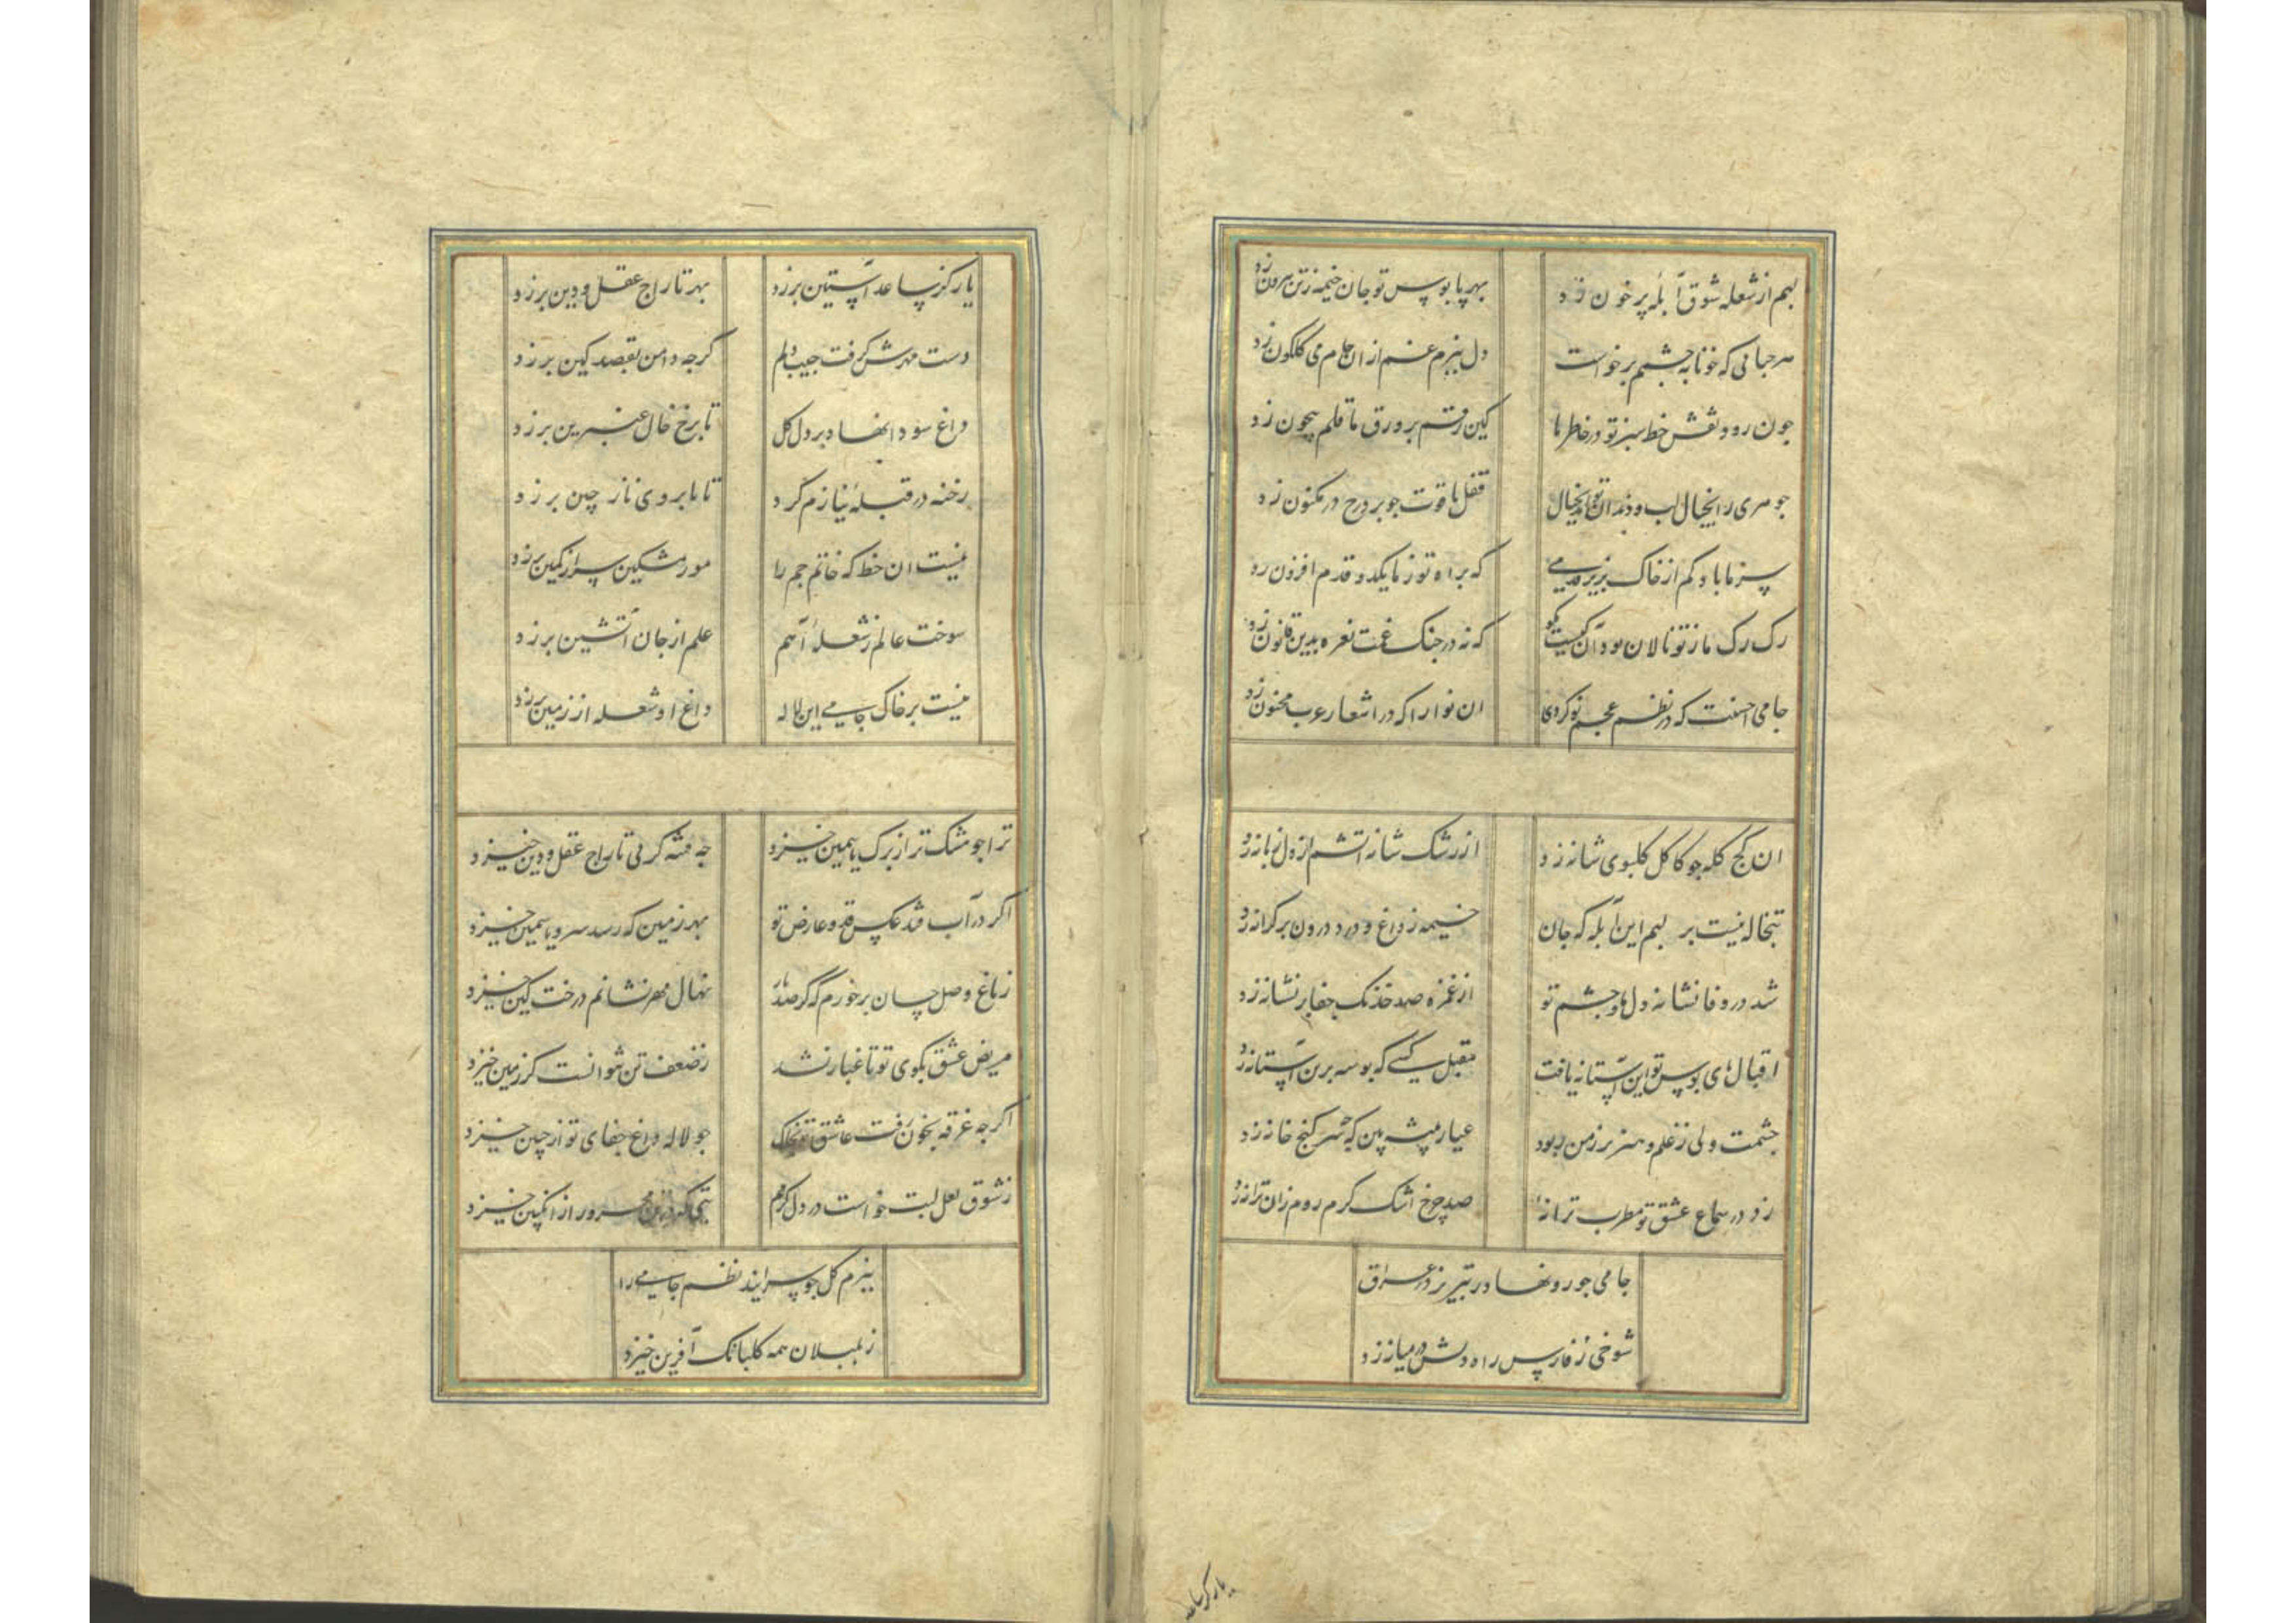 لبم از شعله شوق آبله پر خون زد بهر پابوس تو جان خیمه ز تن بیرون زد
هر حبابی که ز خونابه چشمم برخواست دل ببزم غم از ان جام می کلکون زد
چون رود نقش خط سبز تو در خاطر ما کین رقم بر ورق ما قلم بیچون زد
جوهری را بخیال لب و دندان تو قفل یاقوت چو بر درج در مکنون زد
سر ما باد کم از خاک بزیر قدمی که براه تو ز ما یکدو قدم افزون زد
رک رک ما ز تو نالان بود آن کیست بکو که نه در چنک غمت نعره بدین قانون زد
جامی احسنت که در نظم عجم نو کردی ان نوا را که در اشعار عرب مجنون زد
ان کج کله جو کاکل کلبوی شانه زد از رشک شانه اتشم از دل زبانه زد
تبخاله نیست بر لبم این آبله که جان خیمه ز داغ و درد درون بر کرانه زد
شد در وفا نشانه دل ما و چشم تو از غمزه صد خدنک جفا بر نشانه زد
اقبال پای بوس تو این آستانه یافت مقبل کسی که بوسه برین آستانه زد
چشمت ولی ز علم و هنر بر ز من ربود عیار پیشه بین که چه سر کنج خانه زد
زد در سماع عشق تو مطرب ترانهٔ صد چرخ اشک کرم روم زان ترانه زد
جامی جو رو نهاد ز تبریز در عراق
شوخی ز فارس راه دلش در میانه زد
یار کز ساعد
یار کز ساعد آستین برزد بهر تاراج عقل و دین برزد
دست مهرش کرفت جیب دلم کرجه دامن بقصد کین برزد
داغ سودا نهاد بر دل کل تا برخ خال عنبرین برزد
رخنه در قبلهٔ نیازم کرد تا بابروی ناز چین برزد
نیست ان خط که خاتم جم را مور مشکین سر از کمین برزد
سوخت عالم ز شعلهٔ آهم علم از جان آتشین برزد
نیست بر خاک جامی این لاله داغ او شعله از زمین برزد
ترا جو مشک تر از برک یاسمین خیزد جه فتنه کز پی تاراج عقل و دین خیزد
اکر در آب فتد عکس قد و عارض تو بهر زمین که رسد سرو یاسمین خیزد
ز باغ وصل چسان برخورم که کر صد بار نهال مهر نشانم درخت کین خیزد
مریض عشق بکوی تو تا غبار نشد ز ضعف تن نتوانست کز زمین خیزد
اکرجه غرقه بخون رفت عاشق تو بخاک جو لاله داغ جفای تو از جبین خیزد
ز شوق لعل لبت خواست در دل کرمم تبی که در تن محرور از انکبین خیزد
ببزم کل جو سرایند نظم جامی را
ز بلبلان همه کلبانک آفرین خیزد